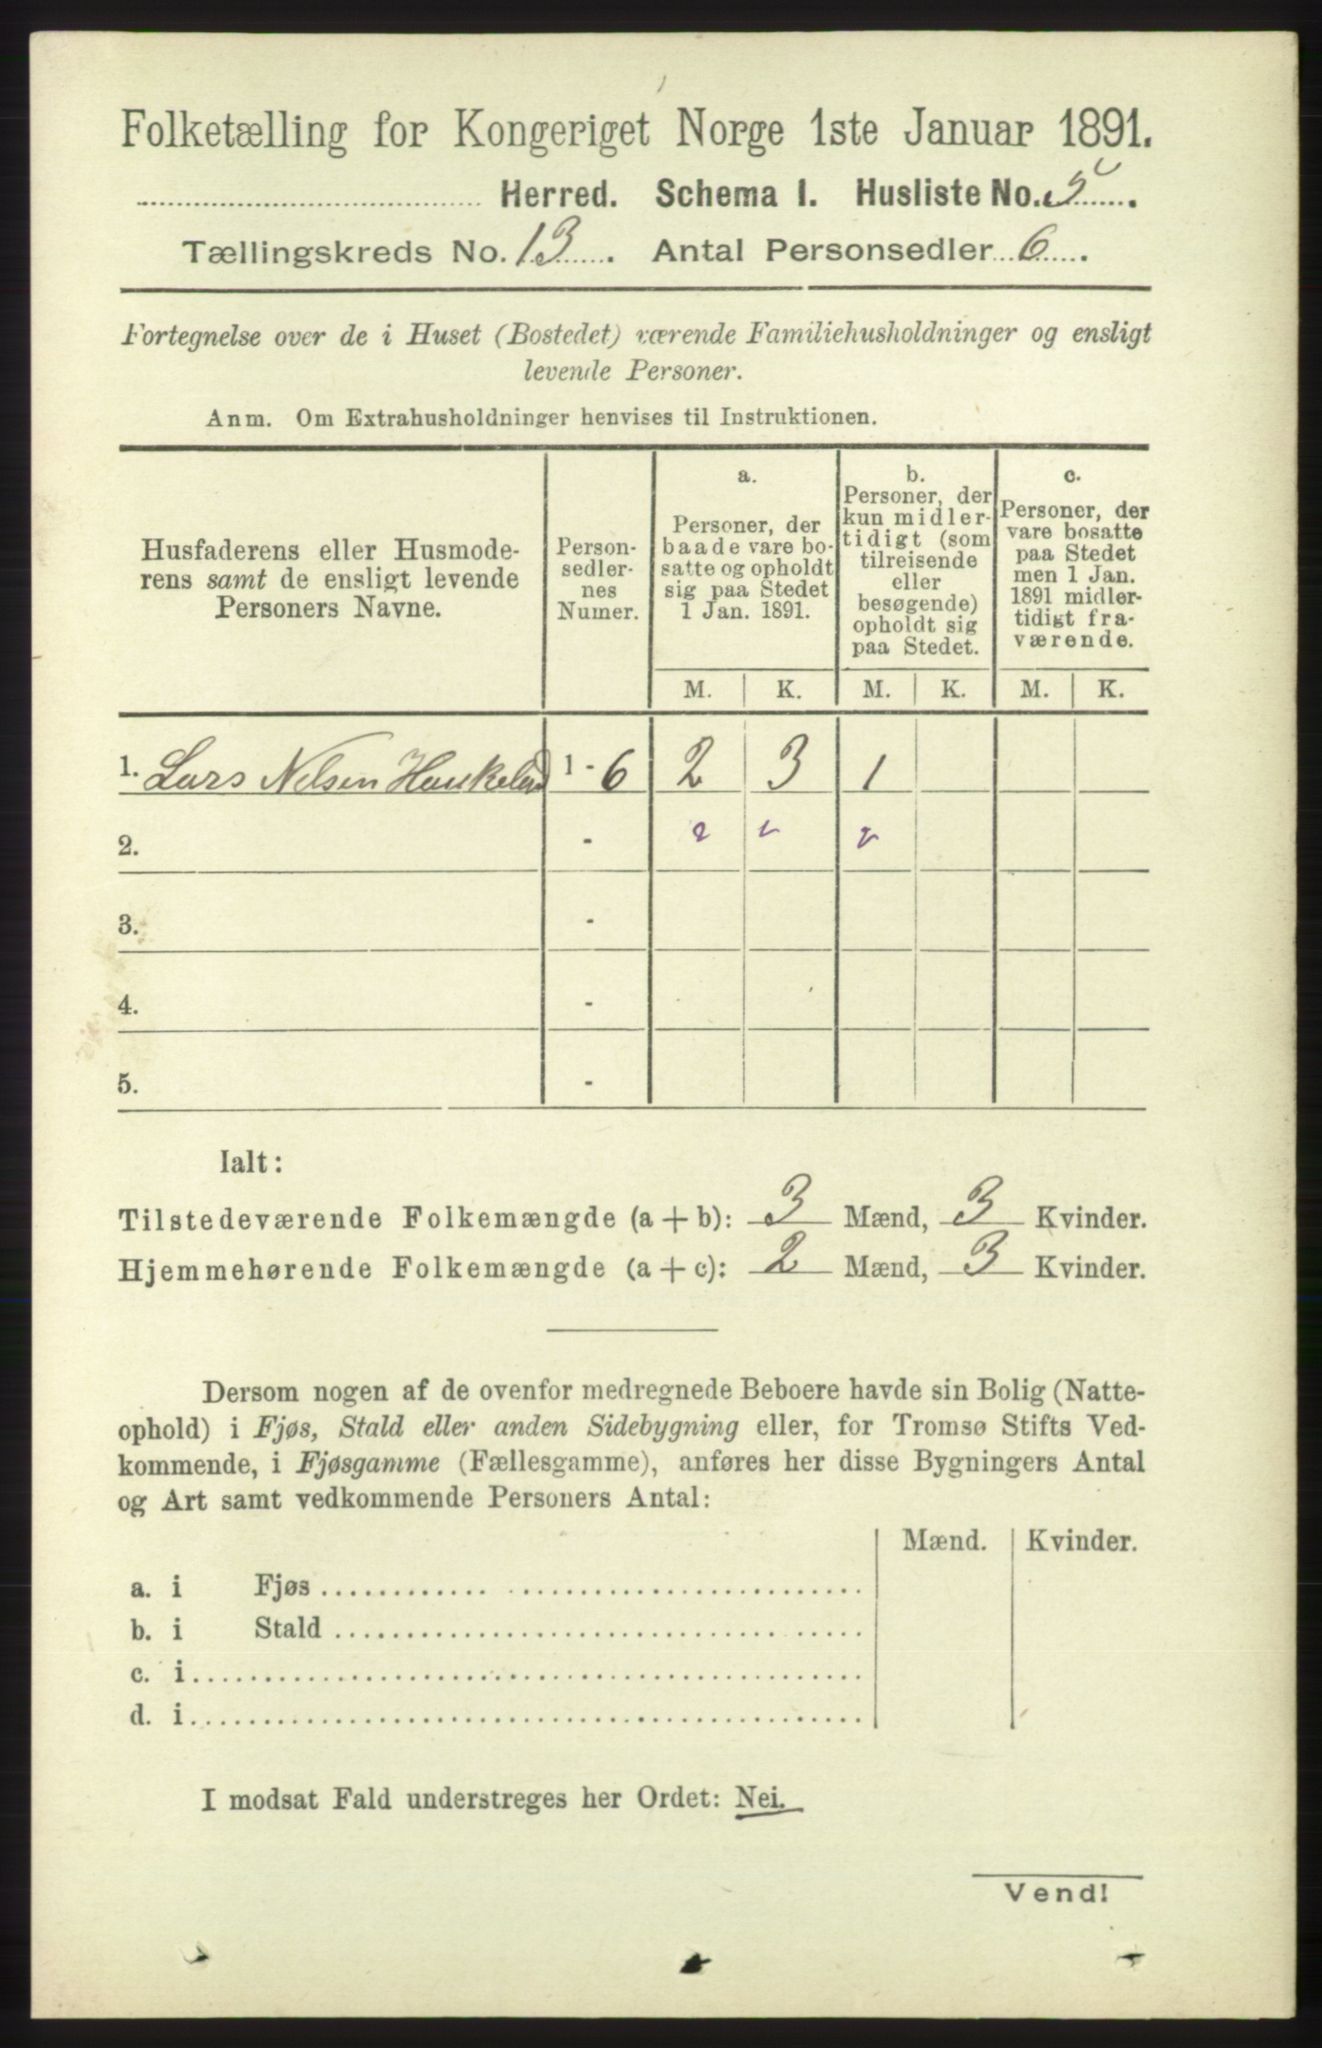 Folketælling for Kongeriget Norge 1ste Januar 1891.
Herred. Schema I. Husliste No. 5.
Tællingskreds No. 13. Antal Personsedler 6.
Fortegnelse over de i Huset (Bostedet) værende Familiehusholdninger og ensligt
levende Personer.
Anm. Om Extrahusholdninger henvises til Instruktionen.
Husfaderens eller Husmode-
rens samt de ensligt levende
Personers Navne.
Person-
sedler-
nes
Numer.
a.
Personer, der
baade vare bo-
satte og opholdt
sig paa Stedet
1 Jan. 1891.
b.
Personer, der
kun midler-
tidigt (som
tilreisende
eller
besøgende)
opholdt sig
paa Stedet.
c.
Personer, der
vare bosatte
paa Stedet
men 1 Jan.
1891 midler-
tidigt fra-
værende.
M. K. M. K. M. K.
1. Lars Nelsen Haukeland 1 - 6 2 3 1
2. -
3. -
4. -
5. -
Ialt:
Tilstedeværende Folkemængde (a + b): 3 Mænd, 3 Kvinder.
Hjemmehørende Folkemængde (a + c): 2 Mænd, 3 Kvinder.
Dersom nogen af de ovenfor medregnede Beboere havde sin Bolig (Natte-
ophold) i Fjøs, Stald eller anden Sidebygning eller, for Tromsø Stifts Ved-
kommende, i Fjøsgamme (Fællesgamme), anføres her disse Bygningers Antal
og Art samt vedkommende Personers Antal:
Mænd. Kvinder.
a. i Fjøs
b. i Stald
c. i
d. i
I modsat Fald understreges her Ordet: Nei.
Vend!